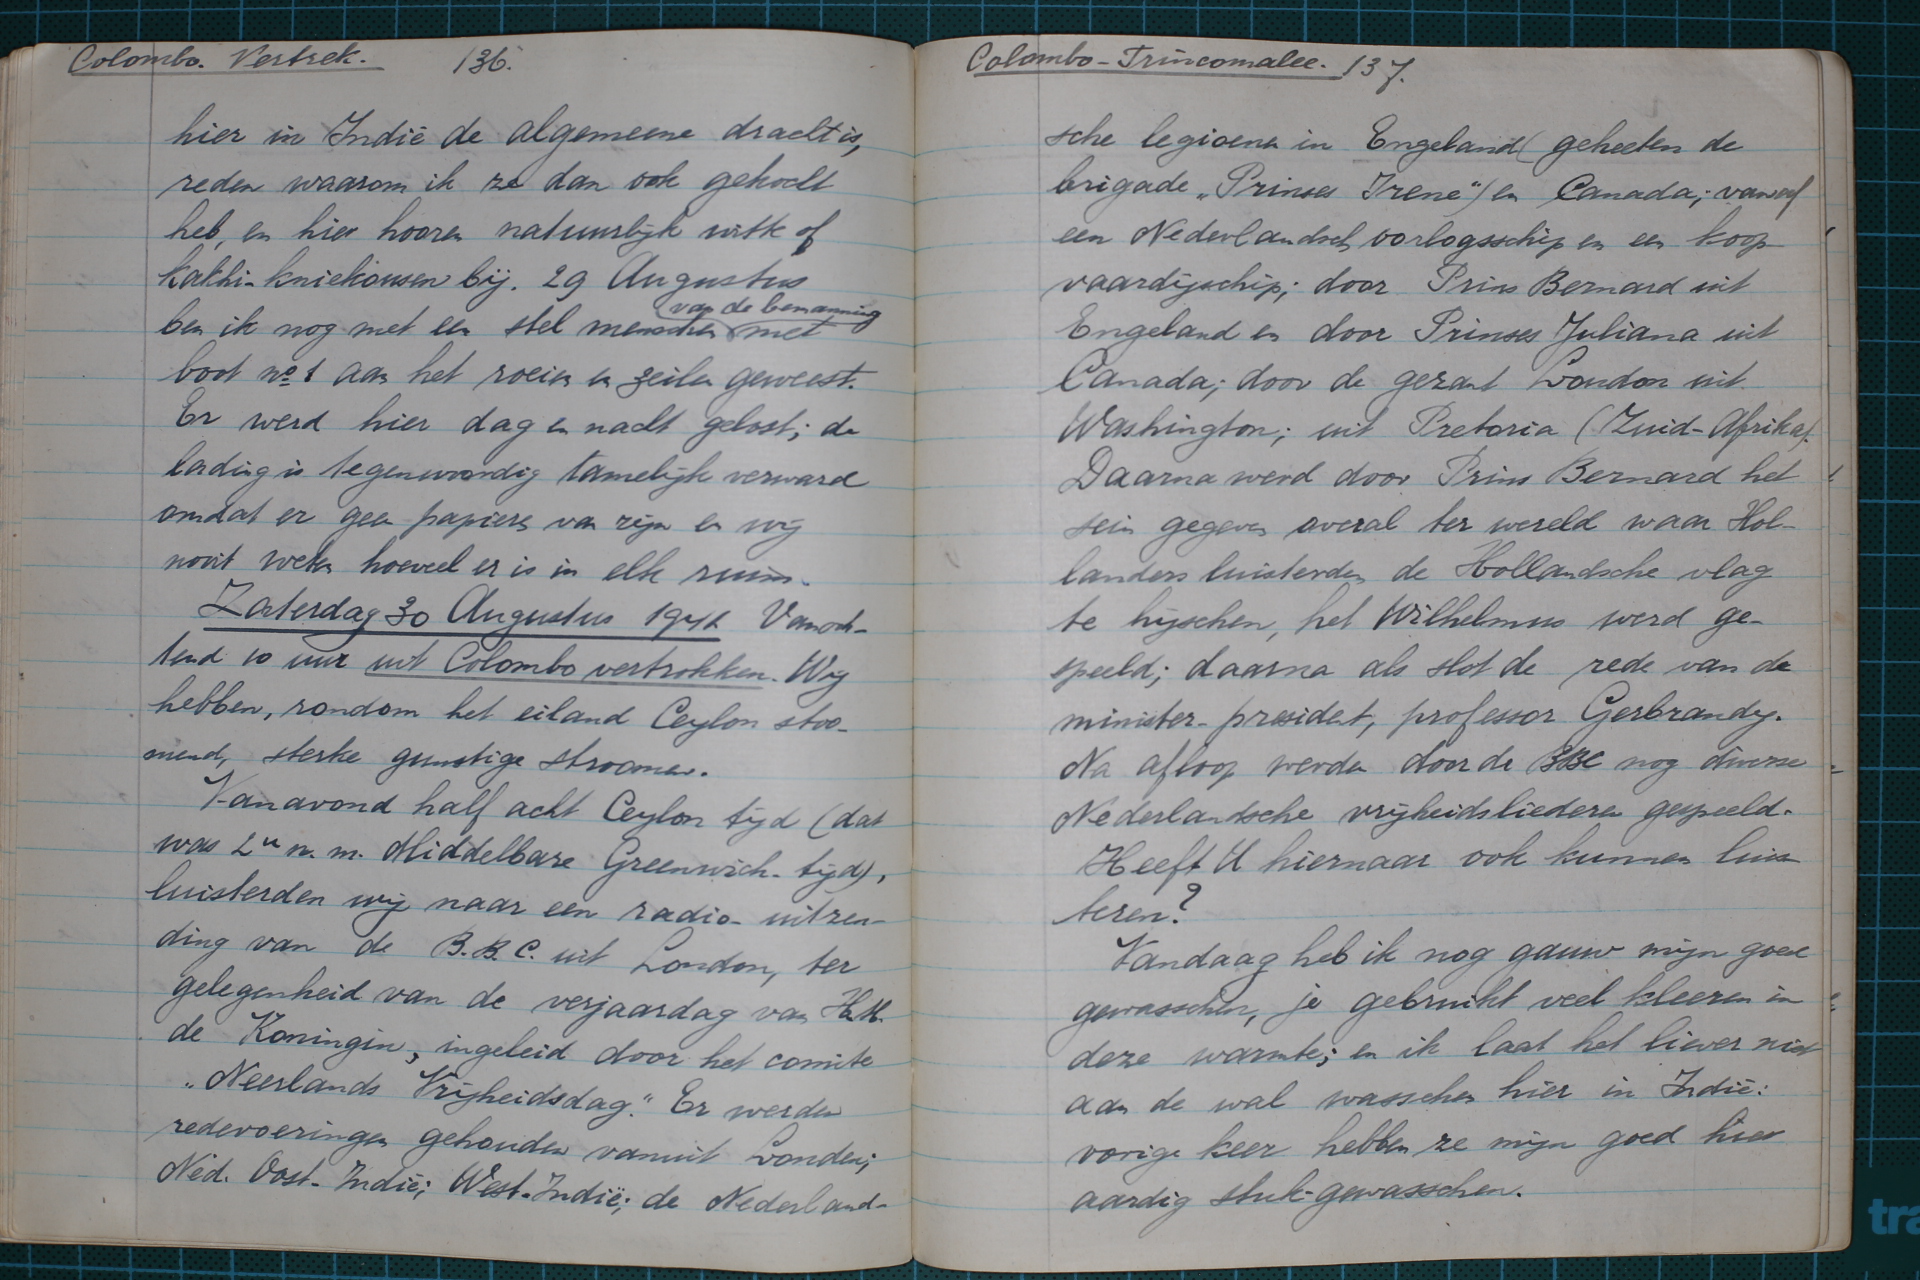 Colombo. Vertrek. 136.
hier in Indië de algemeene dracht is,
reden waarom ik ze dan ook gekocht
heb, en hier hooren natuurlijk witte of
kakhi-kniekousen bij. 29 Augustus
van de bemanning
ben ik nog met een stel menschen met
boot no. 1 aan het roeien en zeilen geweest.
Er werd hier dag en nacht gelost; de
lading is tegenwoordig tamelijk verward
omdat er geen papieren van zijn en wij
nooit weten hoeveel er is in elk ruim.
Zaterdag 30 Augustus 1941 Vanoch-
tend 10 uur uit Colombo vertrokken. Wij
hebben, rondom het eiland Ceylon stoo-
mend, sterke gunstige stroomen.
Vanavond half acht Ceylon tijd (dat
was 2 u n. m. Middelbare Greenwich-tijd),
luisterden wij naar een radio-uitzen-
ding van de B.B.C. uit London, ter
gelegenheid van de verjaardag van H.M.
de Koningin, ingeleid door het comite
„Neerlands Vrijheidsdag.” Er werden
redevoeringen gehouden vanuit Londen;
Ned. Oost-Indië; West-Indië; de Nederland-
Colombo-Trincomalee. 137.
sche legioenen in Engeland (geheeten de
brigade „Prinses Irene”) en Canada; vanaf
een Nederlandsch oorlogsschip en een koop
vaardijschip; door Prins Bernard uit
Engeland en door Prinses Juliana uit
Canada; door de gezant Loudon uit
Washington; uit Pretoria (Zuid-Afrika).
Daarna werd door Prins Bernard het
sein gegeven overal ter wereld waar Hol-
landers luisterden de Hollandsche vlag
te hijschen, het Wilhelmus werd ge-
speeld; daarna als slot de rede van de
minister-president, professor Gerbrandy.
Na afloop werden door de BBC nog diverse
Nederlandsche vrijheidsliederen gespeeld.
Heeft U hiernaar ook kunnen luis
teren?
Vandaag heb ik nog gauw mijn goed
gewasschen, je gebruikt veel kleeren in
deze warmte; en ik laat het liever niet
aan de wal wasschen hier in Indië:
vorige keer hebben ze mijn goed hier
aardig stuk-gewasschen.
tra